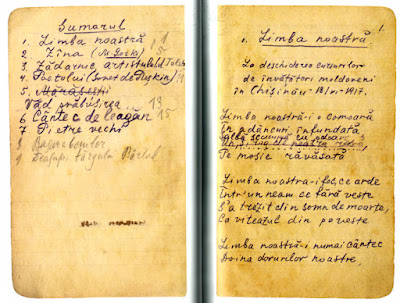 Sumarul
1. Limba noastră 1
2. Zîna (M. Gorki) 5
3. Zădarnic, artistule
4. Poetului (Sonet de Pușkin) 11
5.
Văd prăbușirea 13
6 Cântec de leagăn 15
7 Pietre vechi
8
9
1
1. Limba noastră
La deschiderea cursurilor
de învățători moldoveni
în Chișinău 18/VI 1917.
Limba noastră-i o comoară
În adâncuri înfundată
Pe moșie răvăsată
Limba noastră-i foc, ce arde
Într'un neam ce fără veste
S'a trezit din somn de moarte,
Ca viteazul din poveste
Limba noastră-i numai cântec
Doina dorurilor noastre